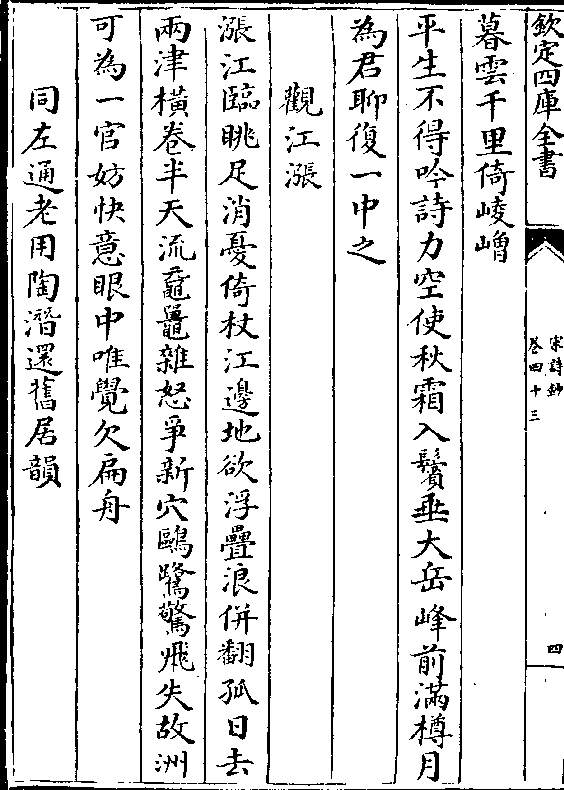 欽定四庫全書
宋詩鈔
卷四十三
四
暮雲千里倚崚嶒
平生不得吟詩力空使秋霜入鬢垂大岳峰前滿樽月
為君聊復一中之
觀江漲
漲江臨眺足消憂倚杖江邊地欲浮疊浪併翻孤日去
兩津橫卷半天流黿鼉雜怒爭新穴鷗鷺驚飛失故洲
可為一官妨快意眼中唯覺欠扁舟
同左通老用陶潛還舊居韻